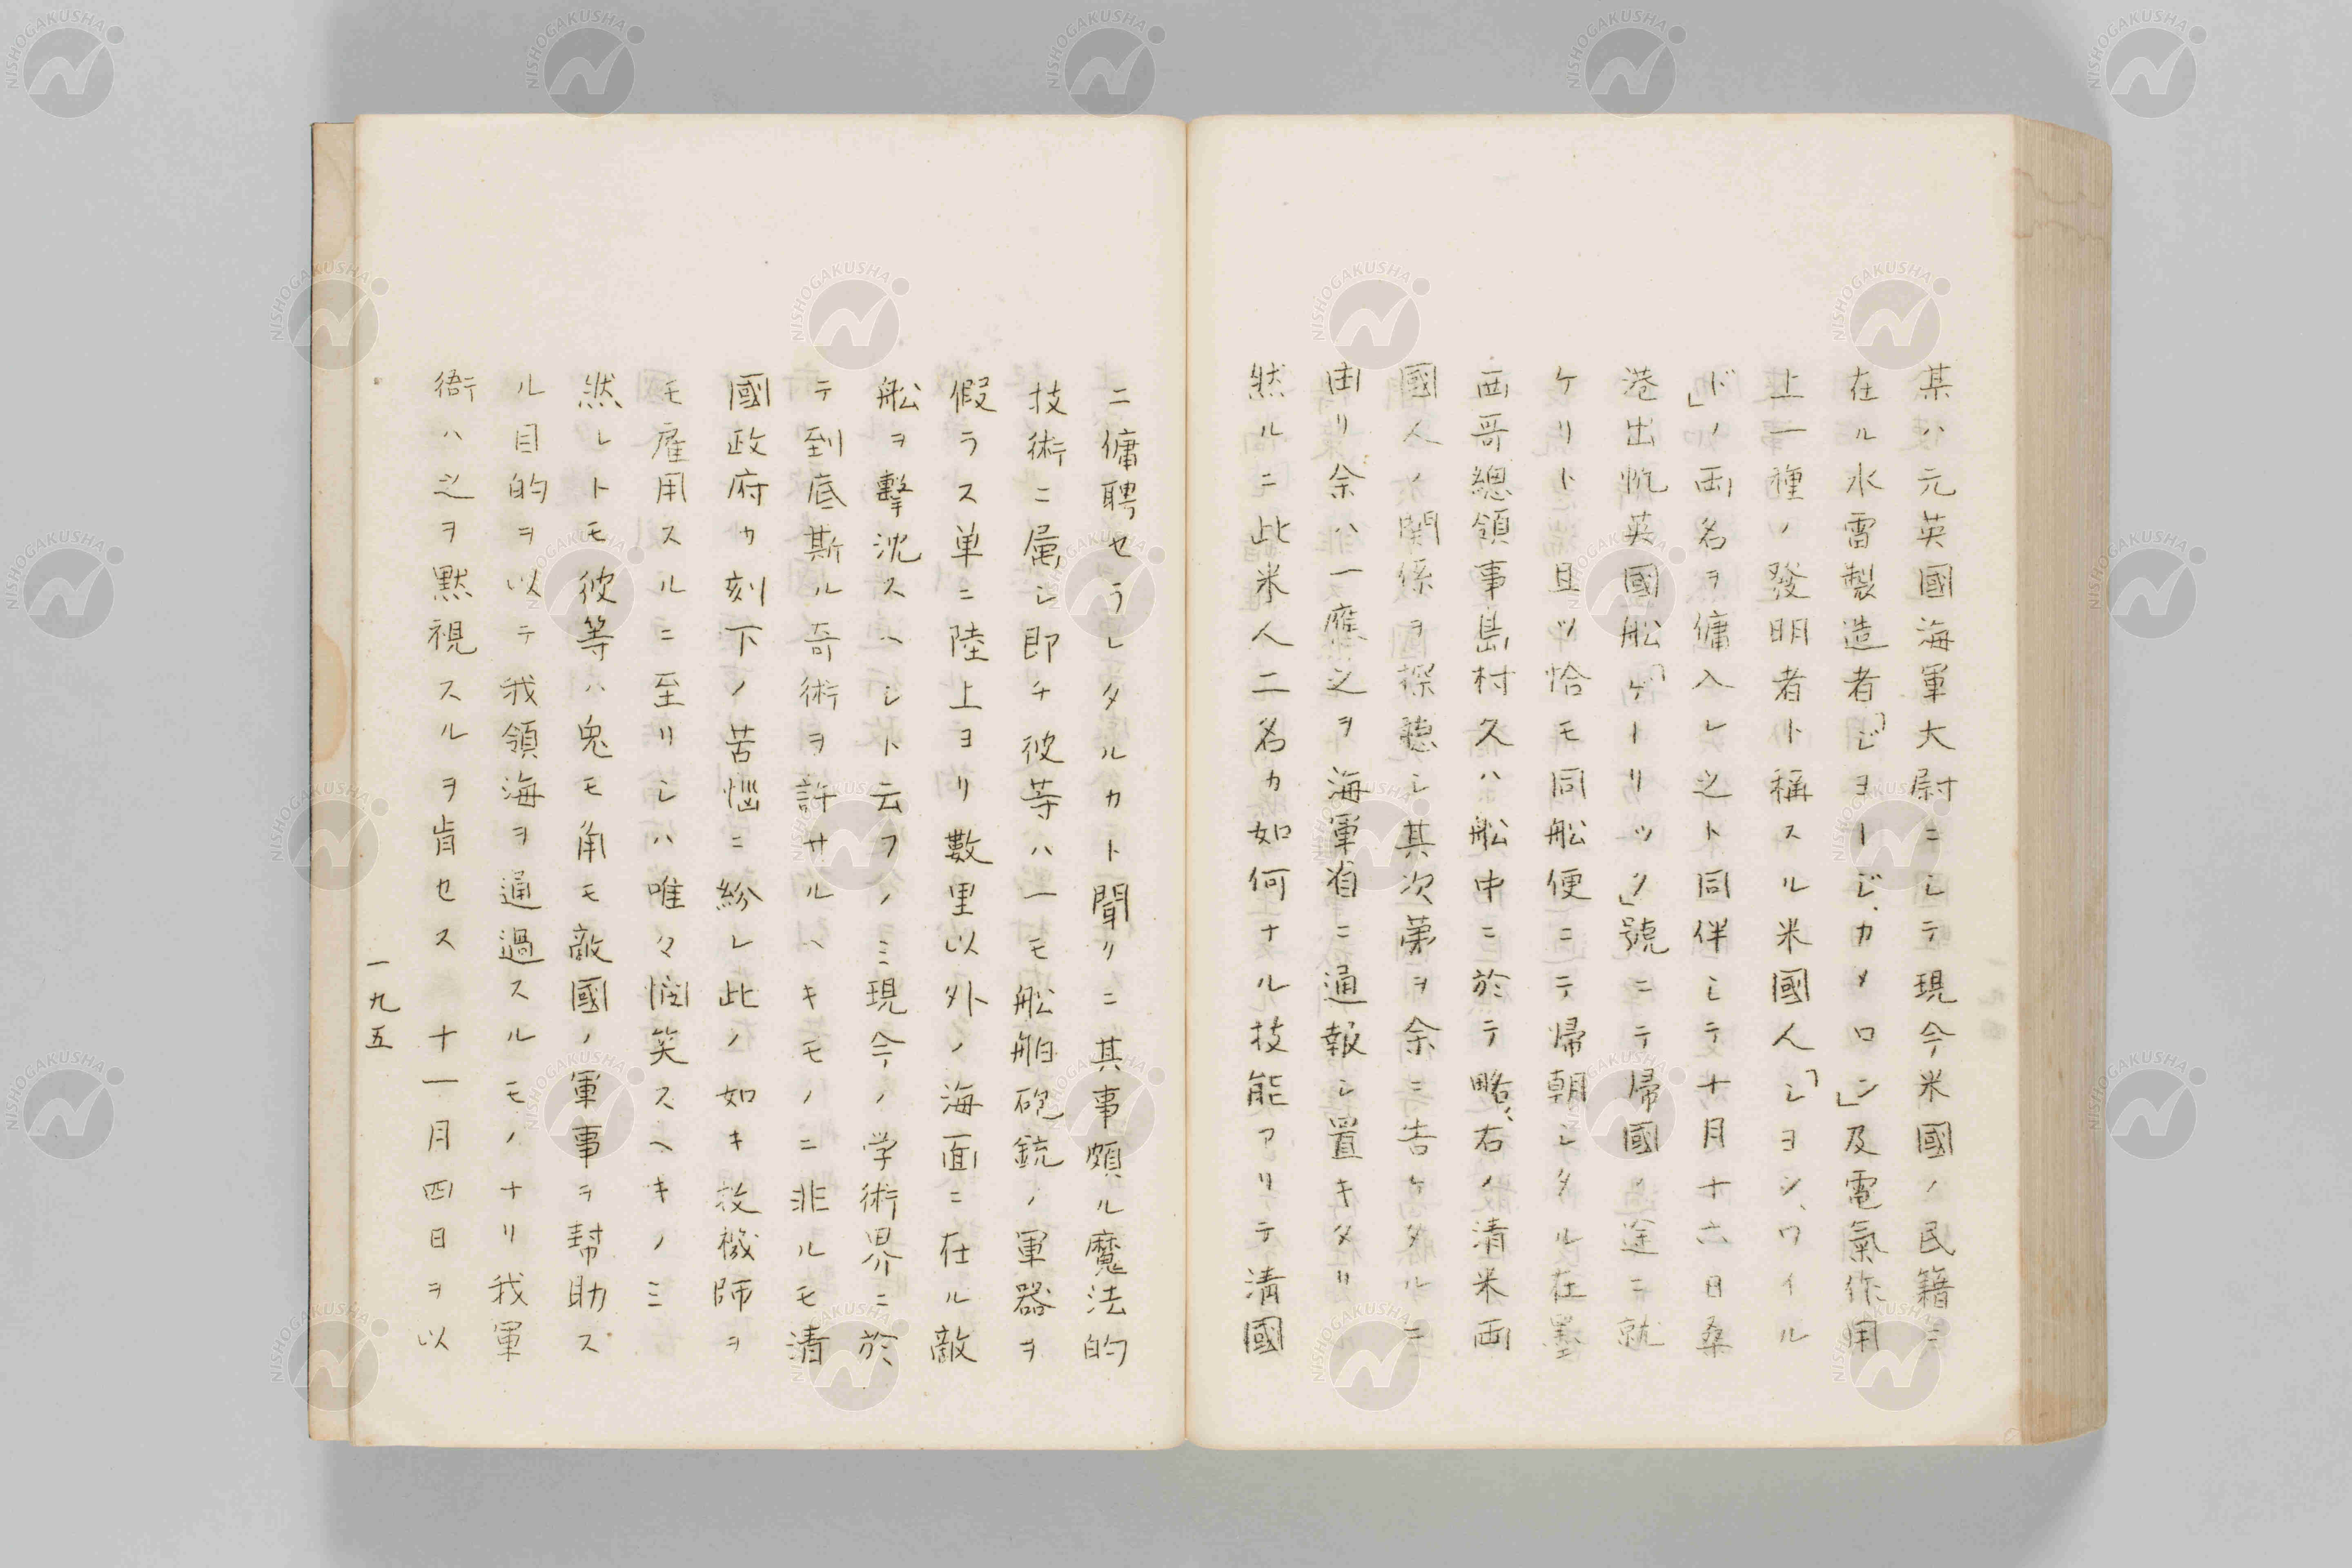 某ハ元英國海軍大尉ニシテ現今米國ノ民籍ニ
在ル水雷製造者「ジヨージ、カメロン」及電氣作用
上一種ノ發明者ト稱スル米國人「ジヨン、ワイル
ド」ノ両名ヲ傭入レ之ト同伴シテ十月十六日桑
港出帆英國舩「ゲーリツク」號ニテ帰國ノ途ニ就
ケリト且ツ恰モ同舩便ニテ帰朝シタル在墨
西哥總領事島村久ハ舩中ニ於テ略、右ノ清米両
國人ノ関係ヲ探聴シ其次第ヲ余ニ告ケタルニ
由リ余ハ一應之ヲ海軍省ニ通報シ置キタリ
然ルニ此米人二名カ如何ナル技能アリテ清國
ニ傭聘セラレタルカト聞クニ其事頗ル魔法的
技術ニ属シ即チ彼等ハ一モ舩舶砲銃ノ軍器ヲ
假ラス単ニ陸上ヨリ數里以外ノ海面ニ在ル敵
舩ヲ擊沈スヘシト云フノミ現今ノ学術界ニ於
テ到底斯ル奇術ヲ許サルヘキモノニ非ルモ清
國政府カ刻下ノ苦惱ニ紛レ此ノ如キ技機師ヲ
モ雇用スルニ至リシハ唯々憫笑スヘキノミ
然レトモ彼等ハ鬼モ角モ敵國ノ軍事ヲ幇助ス
ル目的ヲ以テ我領海ヲ通過スルモノナリ我軍
衙ハ之ヲ黙視スルヲ肯セス 十一月四日ヲ以
一九五
NISHOGAKUSHA